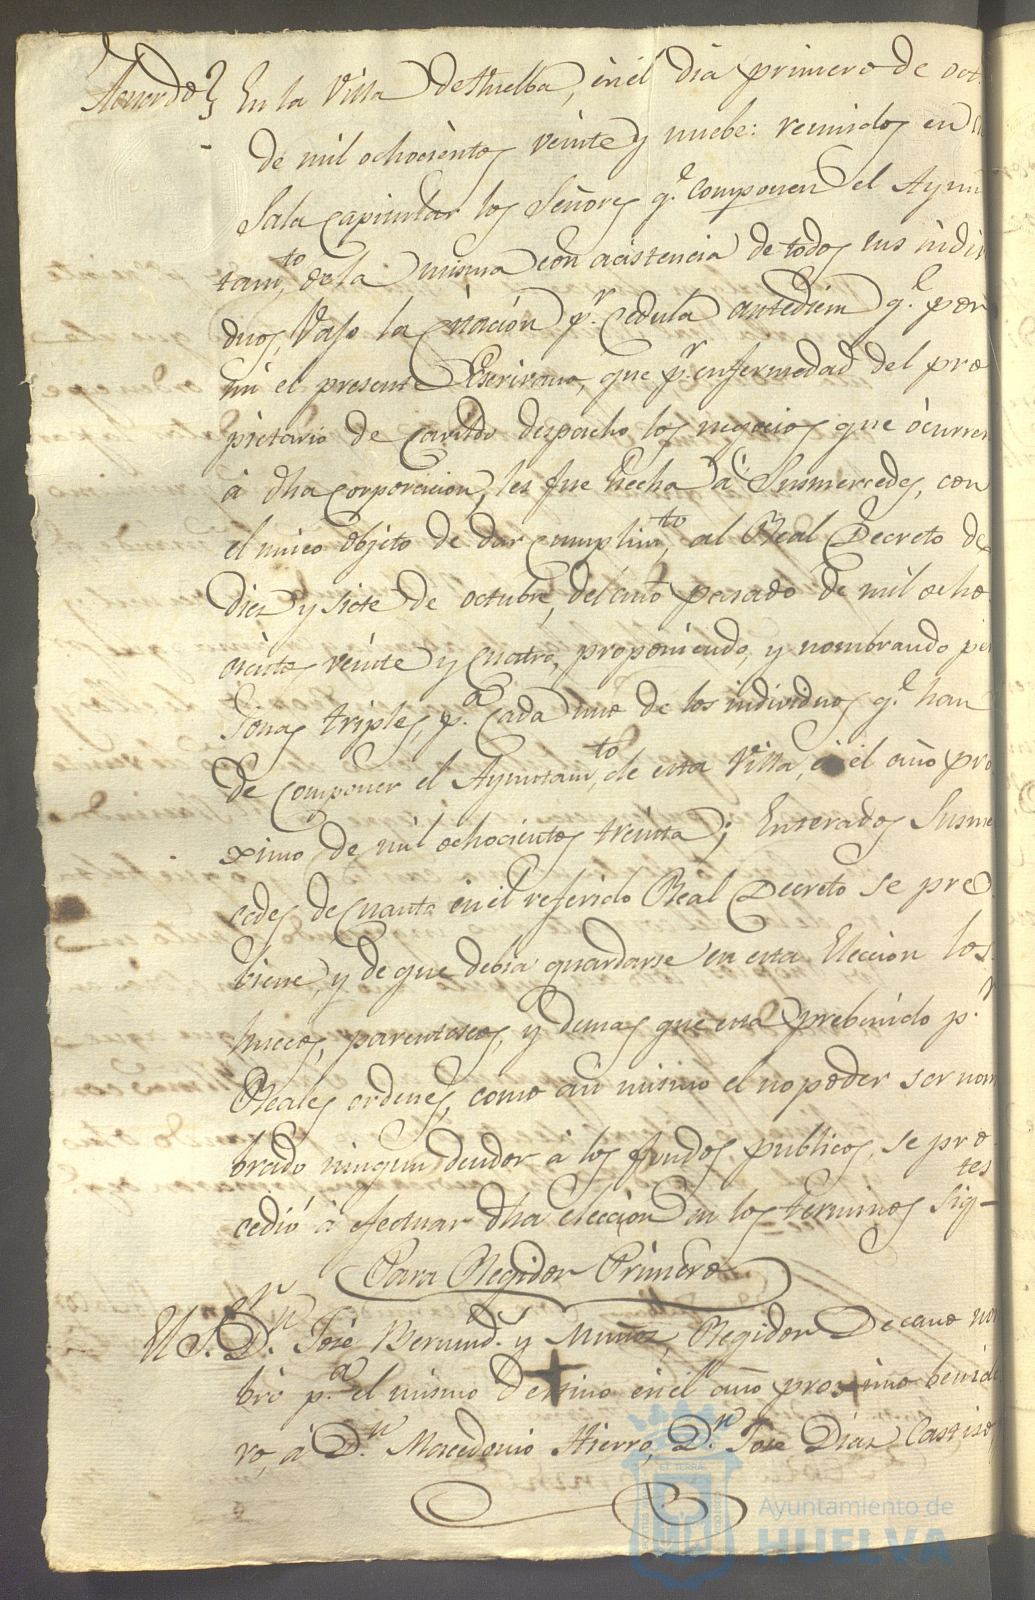 Acuerdo} En la Villa de Huelba, en el dia primero de oct.
de mil ochocientos veinte y nuebe: reunidos en
Sala capitular los Señores q.e componen el Ayun
tam.to de la misma con acistencia de todos sus indivi
duos, vajo la citación p.r Cedula antediem q.e por
mi el presente Escrivano, que p.r enfermedad del pro
pietario de Cavildo despacho los negocios que ocurren
á dha corporacion, les fue hecha á Susmercedes, con
el unico objeto de dar cumplim.to al Real Decreto de
Diez y siete de octubre, del año pasado de mil ocho
cientos veinte y cuatro, proponiendo, y nombrando per
sonas triples, p.a cada uno de los individuos q.e han
de componer el Ayuntam.to de esta Villa, en el año pro
ximo de mil ochocientos treinta; Enterados Susmer
cedes de cuanto en el referido Real Decreto se pre
biene, y de que debia guardarse en esta Eleccion los
huecos, parentescos, y demas que esta prebenido p.r
Reales ordenes, como asi mismo el no poder ser nom
brado ningun deudor á los fondos publicos, se pro
cedió á efectuar dha elección en los terminos sig-tes
Para Regidor Primero
El S.or D.n José Bermud.z y Muñoz, Regidor Decano nom
bró p.a el mismo destino en el año proximo benide
ro, a D.n Macedonio Hierro, D.n José Diaz Castiso
Ayuntamiento de
HUELVA